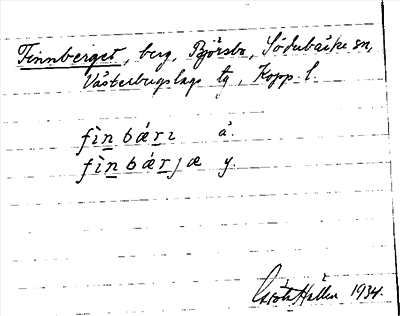 Finnberget, berg, Björsbo, Söderbärke sn,
Västerbergslags tg, Kopp. l.
fìnbárı ä.
fìnbærjæ y.
Hallen 1934.